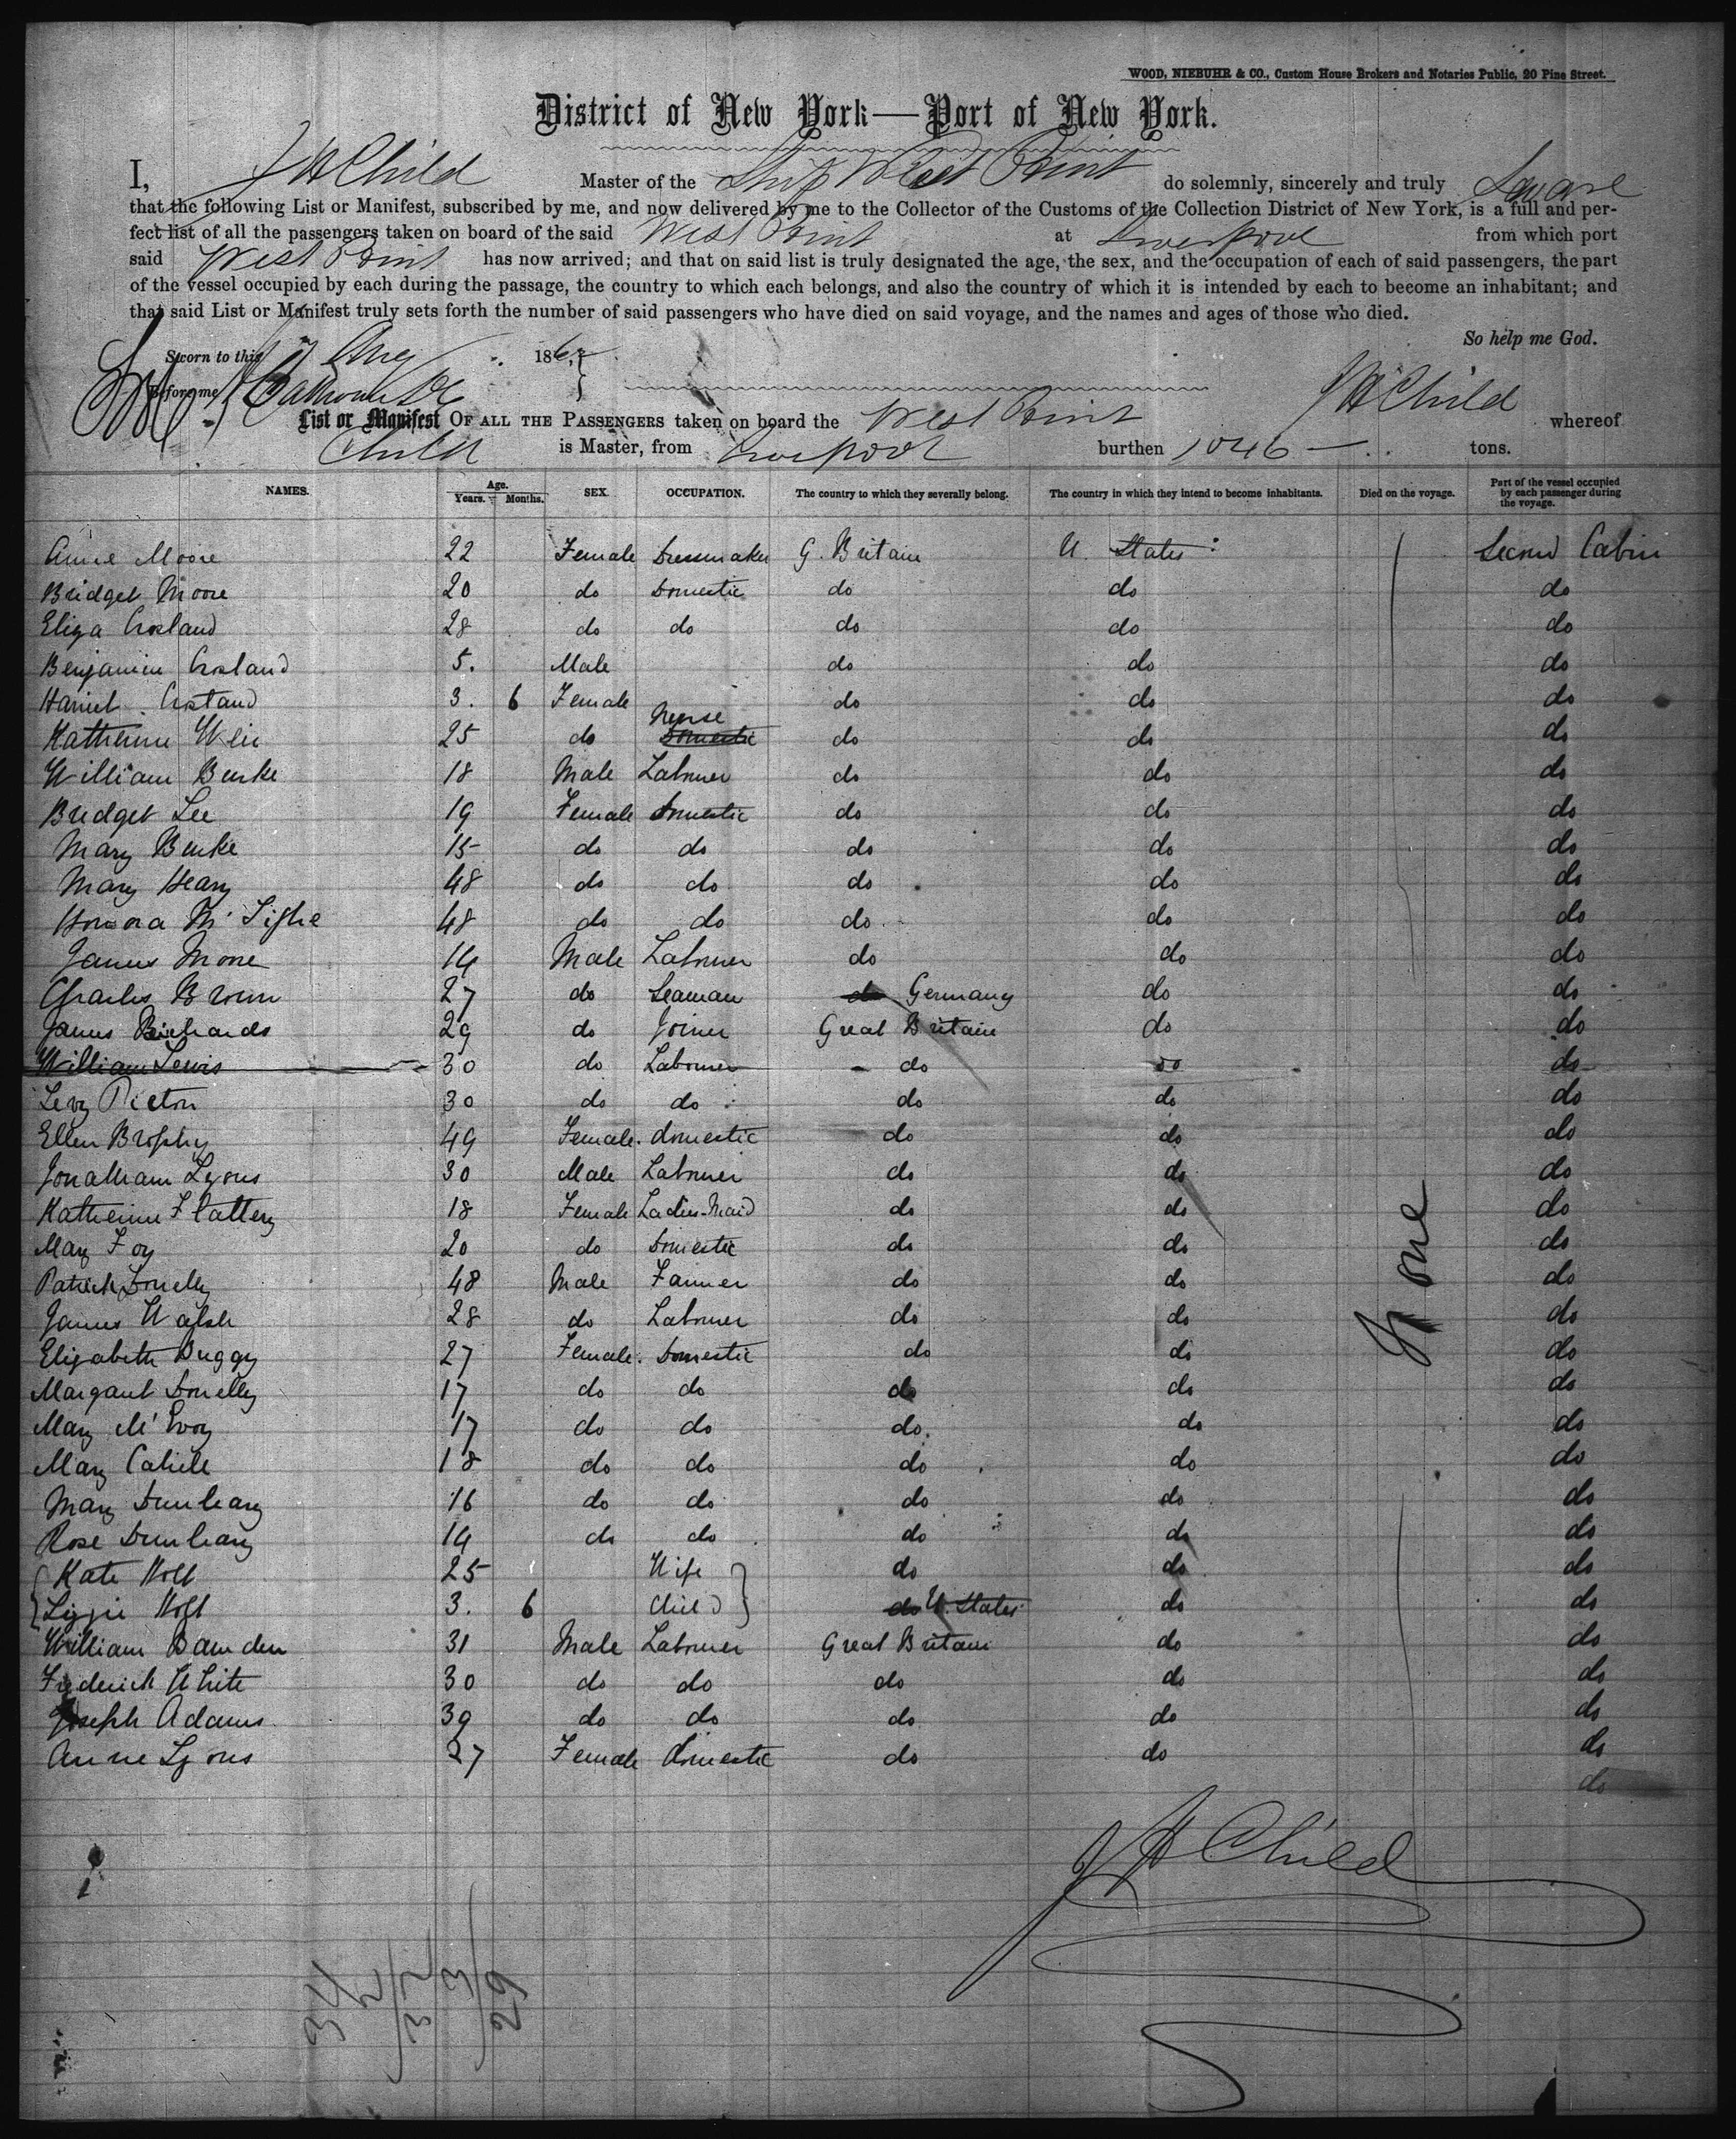 WOOD, NIEBUHR & CO., Custom House Brokers and Notaries Public, 20 Pine Street.
District of New York—Port of New York.
I, J H Child Master of the Ship West Point do solemnly, sincerely and truly Swear
that the following List or Manifest, subscribed by me, and now delivered by me to the Collector of the Customs of the Collection District of New York, is a full and per-
fect list of all the passengers taken on board of the said West Point at Liverpool from which port
said West Point has now arrived; and that on said list is truly designated the age, the sex, and the occupation of each of said passengers, the part
of the vessel occupied by each during the passage, the country to which each belongs, and also the country of which it is intended by each to become an inhabitant; and
that said List or Manifest truly sets forth the number of said passengers who have died on said voyage, and the names and ages of those who died.
So help me God.
Sworn to this Aug 186
Before me J H Child
List or Manifest OF ALL THE PASSENGERS taken on board the West Point whereof
Child is Master, from Liverpool burthen 1046 tons.
NAMES. Age. Years. Months. SEX. OCCUPATION. The country to which they severally belong. The country in which they intend to become inhabitants. Died on the voyage. Part of the vessel occupied by each passenger during the voyage.
Anne Moore 22 Female Dressmaker G. Britain U. States Second Cabin
Bridget Moore 20 do Domestic do do do
Eliza Crosland 28 do do do do do
Benjamin Crosland 5. Male do do do
Harriet Crosland 3. 6 Female do do do
Katherine Weir 25 do Nurse Domestic do do do
William Burke 18 Male Labourer do do do
Bridget Lee 19 Female Domestic do do do
Mary Burke 15 do do do do do
Mary Heary 48 do do do do do
Honora Mc Tighe 48 do do do do do
James Moore 14 Male Labourer do do do
Charles Brown 27 do Seaman do Germany do do
James Richards 29 do Joiner Great Britain do do
William Lewis 30 do Labourer do do do
Levy Picton 30 do do do do do
Ellen Brophy 49 Female. domestic do do do
Jonathan Lyons 30 Male Labourer do do do
Katherine Flattery 18 Female Ladies-Maid do do do
Mary Foy 20 do Domestic do do do
Patrick Donelly 48 Male Farmer do do do
James Walsh 28 do Labourer do do do
Elizabeth Duggy 27 Female. Domestic do do do
Margaret Donelly 17 do do do do do
Mary Mc Evoy 17 do do do. do do
Mary Cahill 18 do do do do do
Mary Dunleavy 16 do do do do do
Rose Dunleavy 14 do do do do do
Kate Holt 25 Wife do do do
Lizzie Holt 3. 6 Child do U. States do do
William Bamden 31 Male Labourer Great Britain do do
Frederick White 30 do do do do do
Joseph Adams 39 do do do do do
Anne Lyons 27 Female domestic do do do
do
None
J H Child
34
2
32
3
29